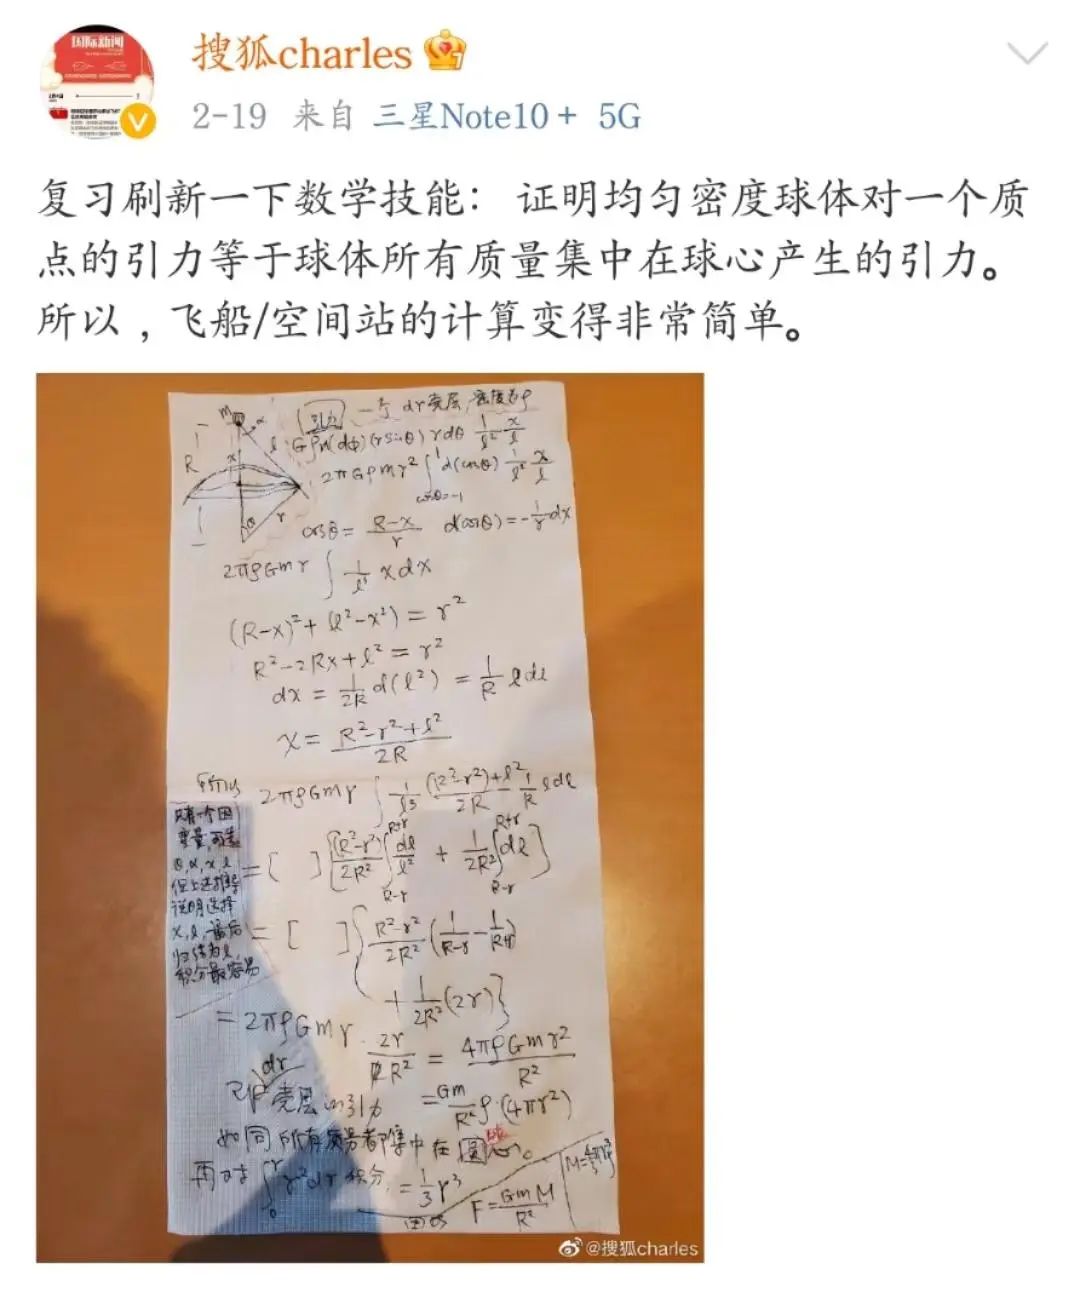 国际新闻
搜狐charles
2-19 来自 三星Note10+ 5G
复习刷新一下数学技能： 证明均匀密度球体对一个质
点的引力等于球体所有质量集中在球心产生的引力。
所以，飞船/空间站的计算变得非常简单。
m α
R x l
θ r
引力 一个 dr 壳层, 密度为ρ
Gρm(dφ)(r sinθ) r dθ 1/l² x/l
2πGρmr² ∫_{cosθ=-1}^{1} d(cosθ) 1/l² x/l
cosθ = (R-x)/r d(cosθ) = -1/r dx
2πρGmr ∫ 1/l³ x dx
(R-x)² + (l²-x²) = r²
R²-2Rx+l² = r²
dx = 1/2R d(l²) = 1/R l dl
x = (R²-r²+l²)/2R
所以 2πρGmr ∫ 1/l³ ((R²-r²)+l²)/2R 1/R l dl
只有一个因
变量, 可选
θ, α, x, l
但上述推导
说明选择
x, l, 最后
归结为l,
积分最容易
= [ ] [(R²-r²)/2R² ∫_{R-r}^{R+r} dl/l² + 1/2R² ∫_{R-r}^{R+r} dl]
= [ ] {(R²-r²)/2R² (1/(R-r) - 1/(R+r))
+ 1/2R² (2r)}
= 2πρGmr · 2r/R² = 4πρGmr²/R²
即 dr 壳层的引力 = Gm/R² ρ·(4πr²)
如同所有质量都集中在圆球心。
再对 ∫₀^r r²dr 积分, = 1/3 r³
F = GmM/R²
@搜狐charles